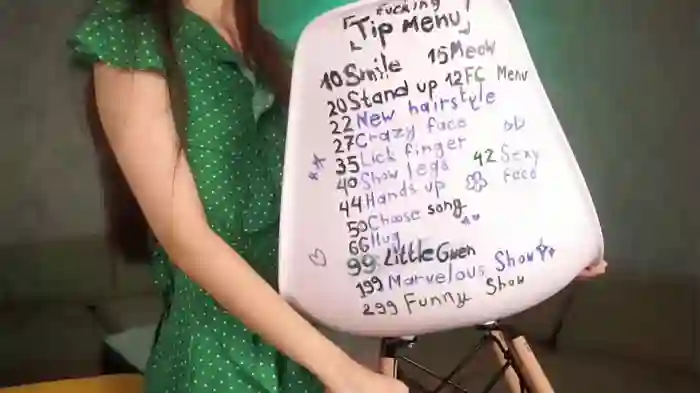 Fucking
Tip Menu
10 Smile 15 Meow
20 Stand up 12 FC Menu
22 New hairstyle
27 Crazy face
35 Lick finger
40 Show legs 42 Sexy Face
44 Hands up
50 Choose song
66 Hug
99 Little Gwen
199 Marvelous Show
299 Funny Show